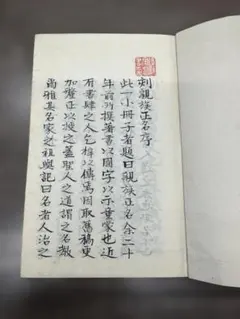 刻親族正名序
此一小冊子者題曰親族正名余二十
年前所撰著書以國字以示童蒙也近
有書肆之人乞梓以傳焉因取舊稿更
加釐正以授之蓋聖人之道謂之名教
尚雅其名家之祖與記曰名者人治之